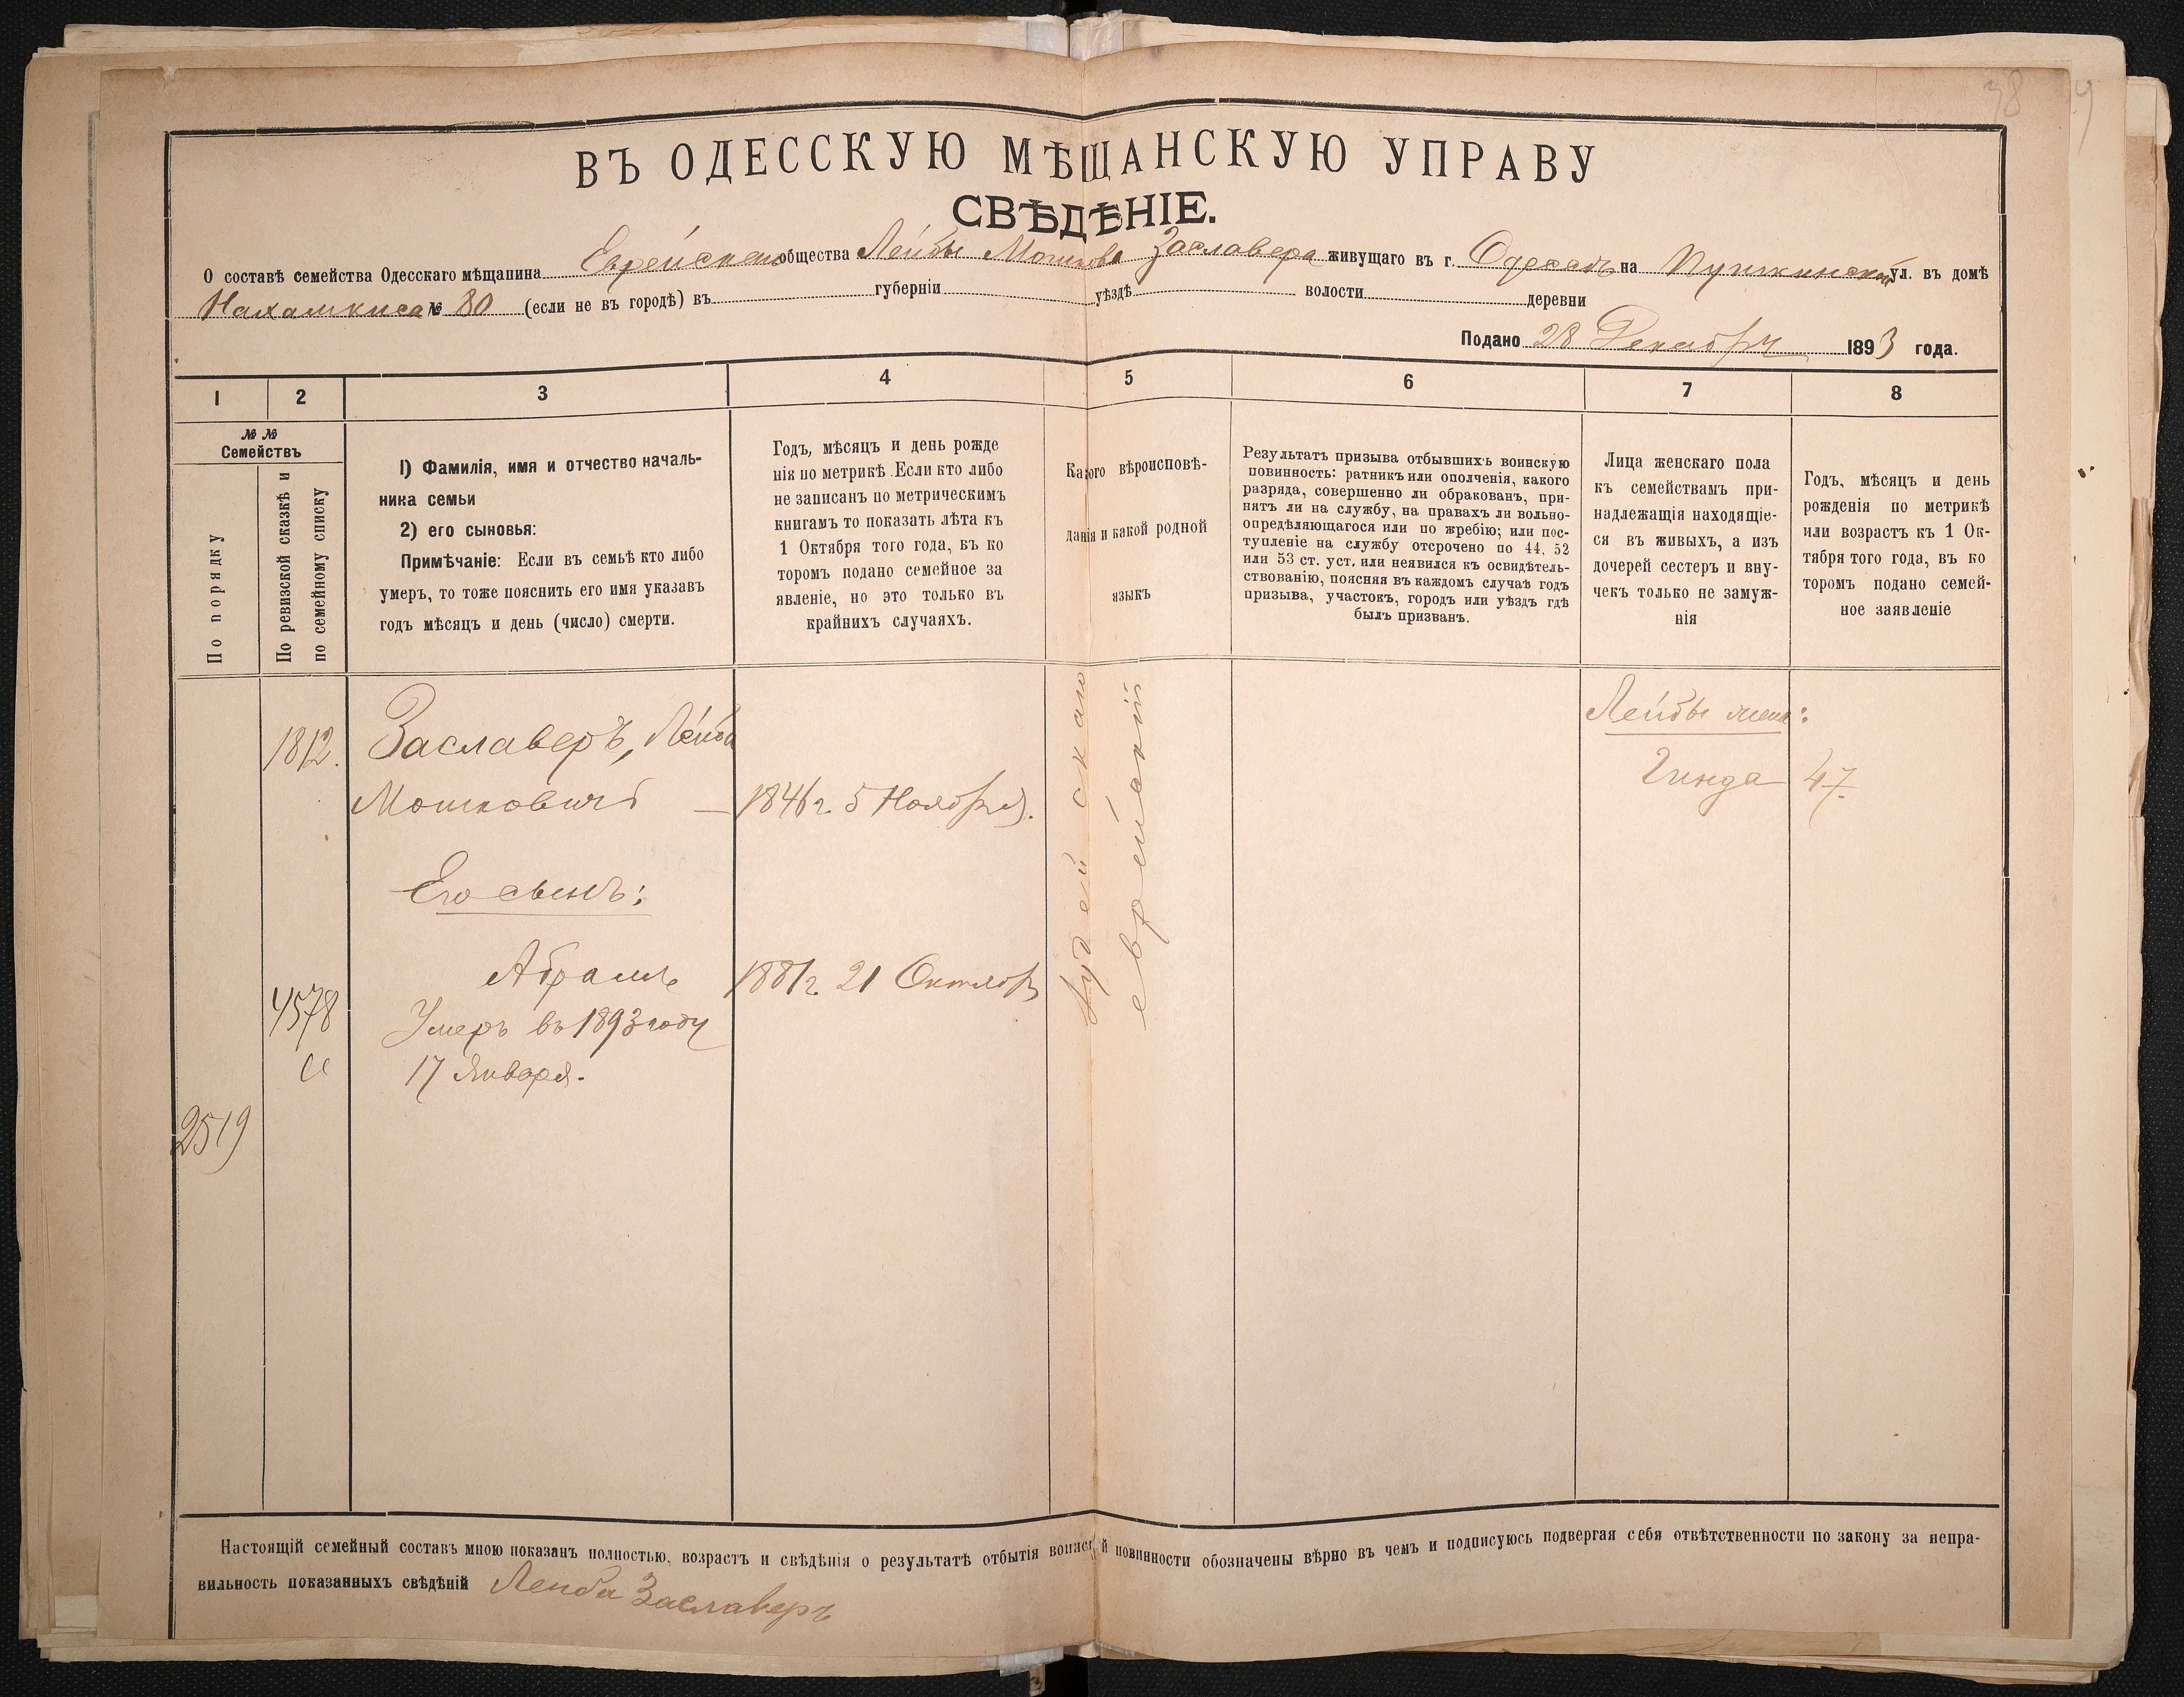 38
ВЪ ОДЕССКУЮ МѢЩАНСКУЮ УПРАВУ
СВѢДѢНІЕ.
О составѣ семейства Одесскаго мѣщанина Еврейскаго общества Лейбы Мошкова Заславера живущаго въ г. Одессѣ на Пушкинской ул. въ домѣ
Нахамкиса № 80 (если не въ городѣ) въ губерніи уѣздѣ волости деревни
Подано 28 Декабря 1893 года.
1 2 3 4 5 6 7 8
№ №
Семействъ
По порядку
По ревизской сказкѣ и
по семейному списку
1) Фамилія, имя и отчество началь-
ника семьи
2) его сыновья:
Примѣчаніе: Если въ семьѣ кто либо
умеръ, то тоже пояснить его имя указавъ
годъ мѣсяцъ и день (число) смерти.
Годъ, мѣсяцъ и день рожде
нія по метрикѣ. Если кто либо
не записанъ по метрическимъ
книгамъ то показать лѣта къ
1 Октября того года, въ ко
торомъ подано семейное за
явленіе, но это только въ
крайнихъ случаяхъ.
Какого вѣроисповѣ-
данія и какой родной
языкъ
Результатъ призыва отбывшихъ воинскую
повинность: ратникъ или ополченія, какого
разряда, совершенно ли обракованъ, при-
нятъ ли на службу, на правахъ ли вольно-
опредѣляющагося или по жребію; или пос-
тупленіе на службу отсрочено по 44, 52
или 53 ст. уст. или неявился къ освидѣтель-
ствованію, поясняя въ каждомъ случаѣ годъ
призыва, участокъ, городъ или уѣздъ гдѣ
былъ призванъ.
Лица женскаго пола
къ семействамъ при-
надлежащія находящіе-
ся въ живыхъ, а изъ
дочерей сестеръ и вну-
чекъ только не замуж-
нія
Годъ, мѣсяцъ и день
рожденія по метрикѣ
или возрастъ къ 1 Ок-
тября того года, въ ко
торомъ подано семей-
ное заявленіе
1812. Заславеръ, Лейба
Мошковичъ — 1846 г. 5 Ноября.
Его сынъ:
Абрамъ 1881 г. 21 Октябр
4578 Умеръ въ 1893 году
17 Января.
2519
Іудейскаго
еврейскій
Лейбы жена:
Гинда 47.
Настоящій семейный составъ мною показанъ полностью, возрастъ и свѣдѣнія о результатѣ отбытія воинской повинности обозначены вѣрно въ чемъ и подписуюсь подвергая себя отвѣтственности по закону за непра-
вильность показанныхъ свѣдѣній Лейба Заславеръ